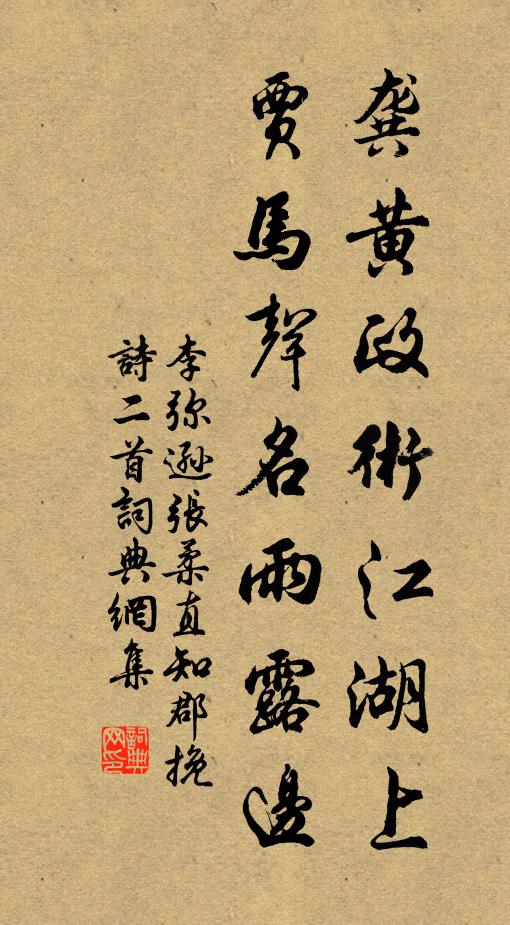 龔黃政術江湖上
賈馬聲名雨露邊
李弥遜張柔直知郡挽
詩二首詞典網集
詞典网印